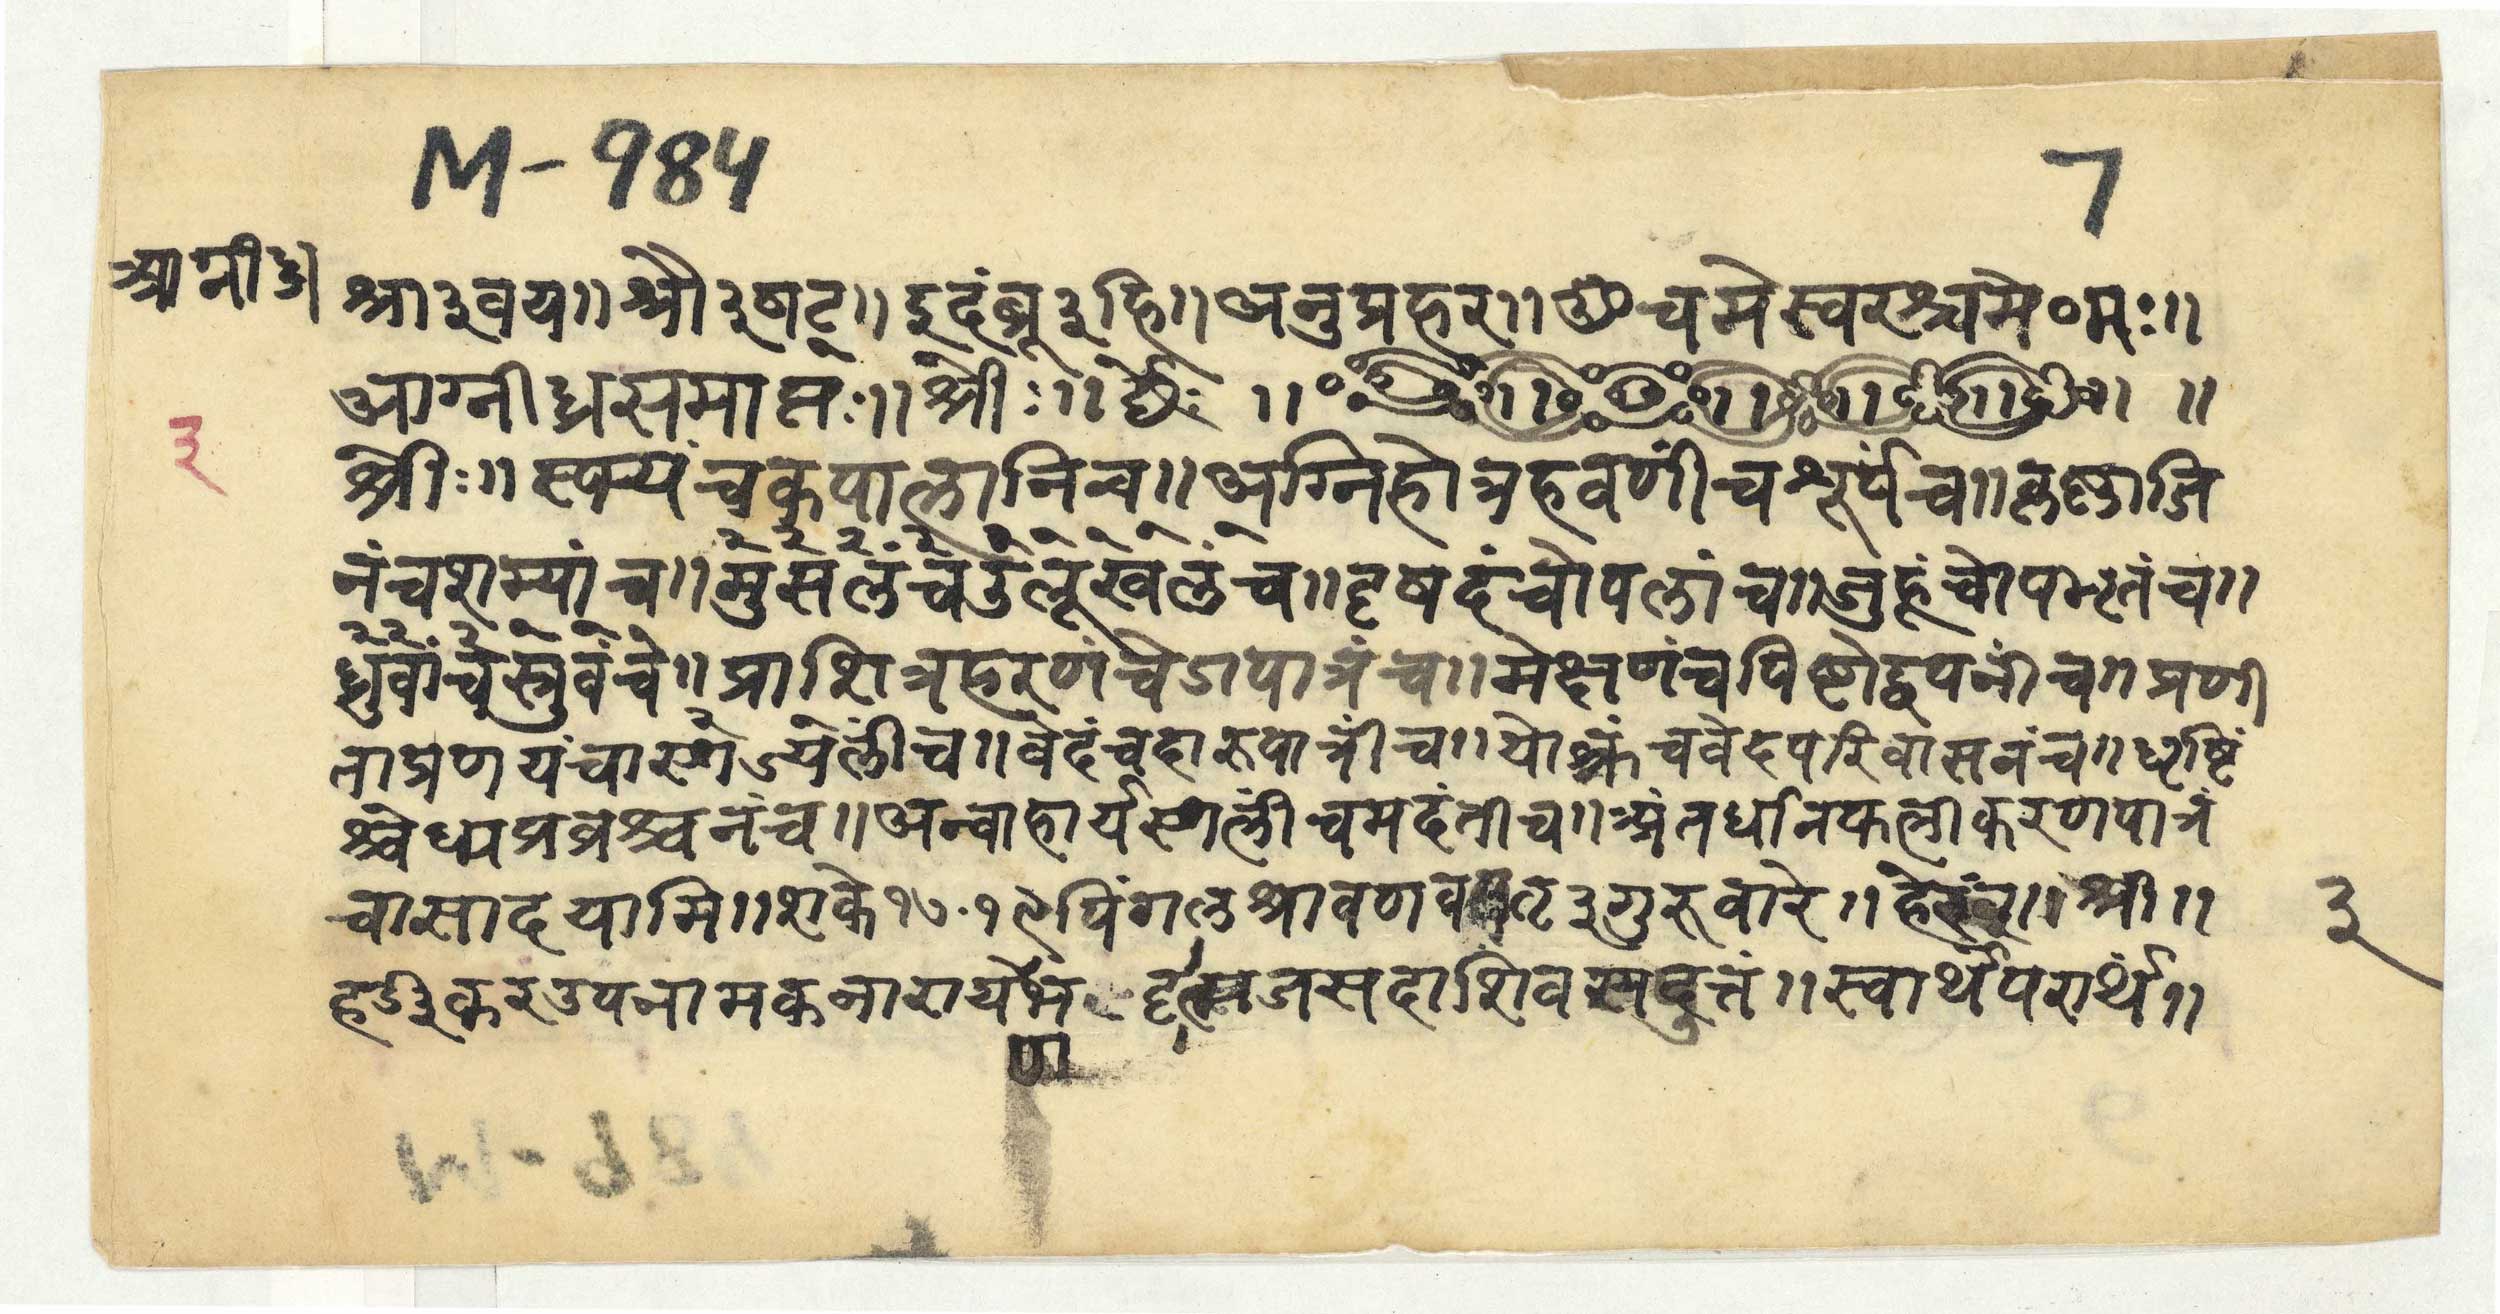 M-984
7
आग्नीध्र
श्रा३वय॥श्रौ३षट्॥इदंब्रू३हि॥अनुप्रहर॥ॐचमेस्वरश्चमे०मः॥
आग्नीध्रसमाप्तः॥श्रीः॥छेः॥
३
श्रीः॥स्फ्यंचकपालानिच॥अग्निहोत्रहवणींचशूर्पंच॥कृष्णाजि
नंचशम्यांच॥मुसलंचउलूखलंच॥दृषदंचोपलांच॥जुहूंचोपभृतंच॥
ध्रुवांचस्रुवंच॥प्राशित्रहरणंचेडापात्रंच॥मेक्षणंचपिष्टोद्वपनींच॥प्रणी
ताप्रणयंचाज्यस्थालींच॥वेदंचदारुपात्रींच॥योक्त्रंचवेदपरिवासनंच॥धृष्टिं
श्चेध्मप्रव्रश्चनंच॥अन्वाहार्यस्थालींचमदंतीच॥अंतर्धानफलीकरणपात्रं
चासादयामि॥शके१७१९पिंगलश्रावणव३गुरूवारे॥हेरंब॥श्री॥
३
हर्डीकरउपनामकनारायेण सदाशिव॥स्वार्थंपरार्थं॥
ण